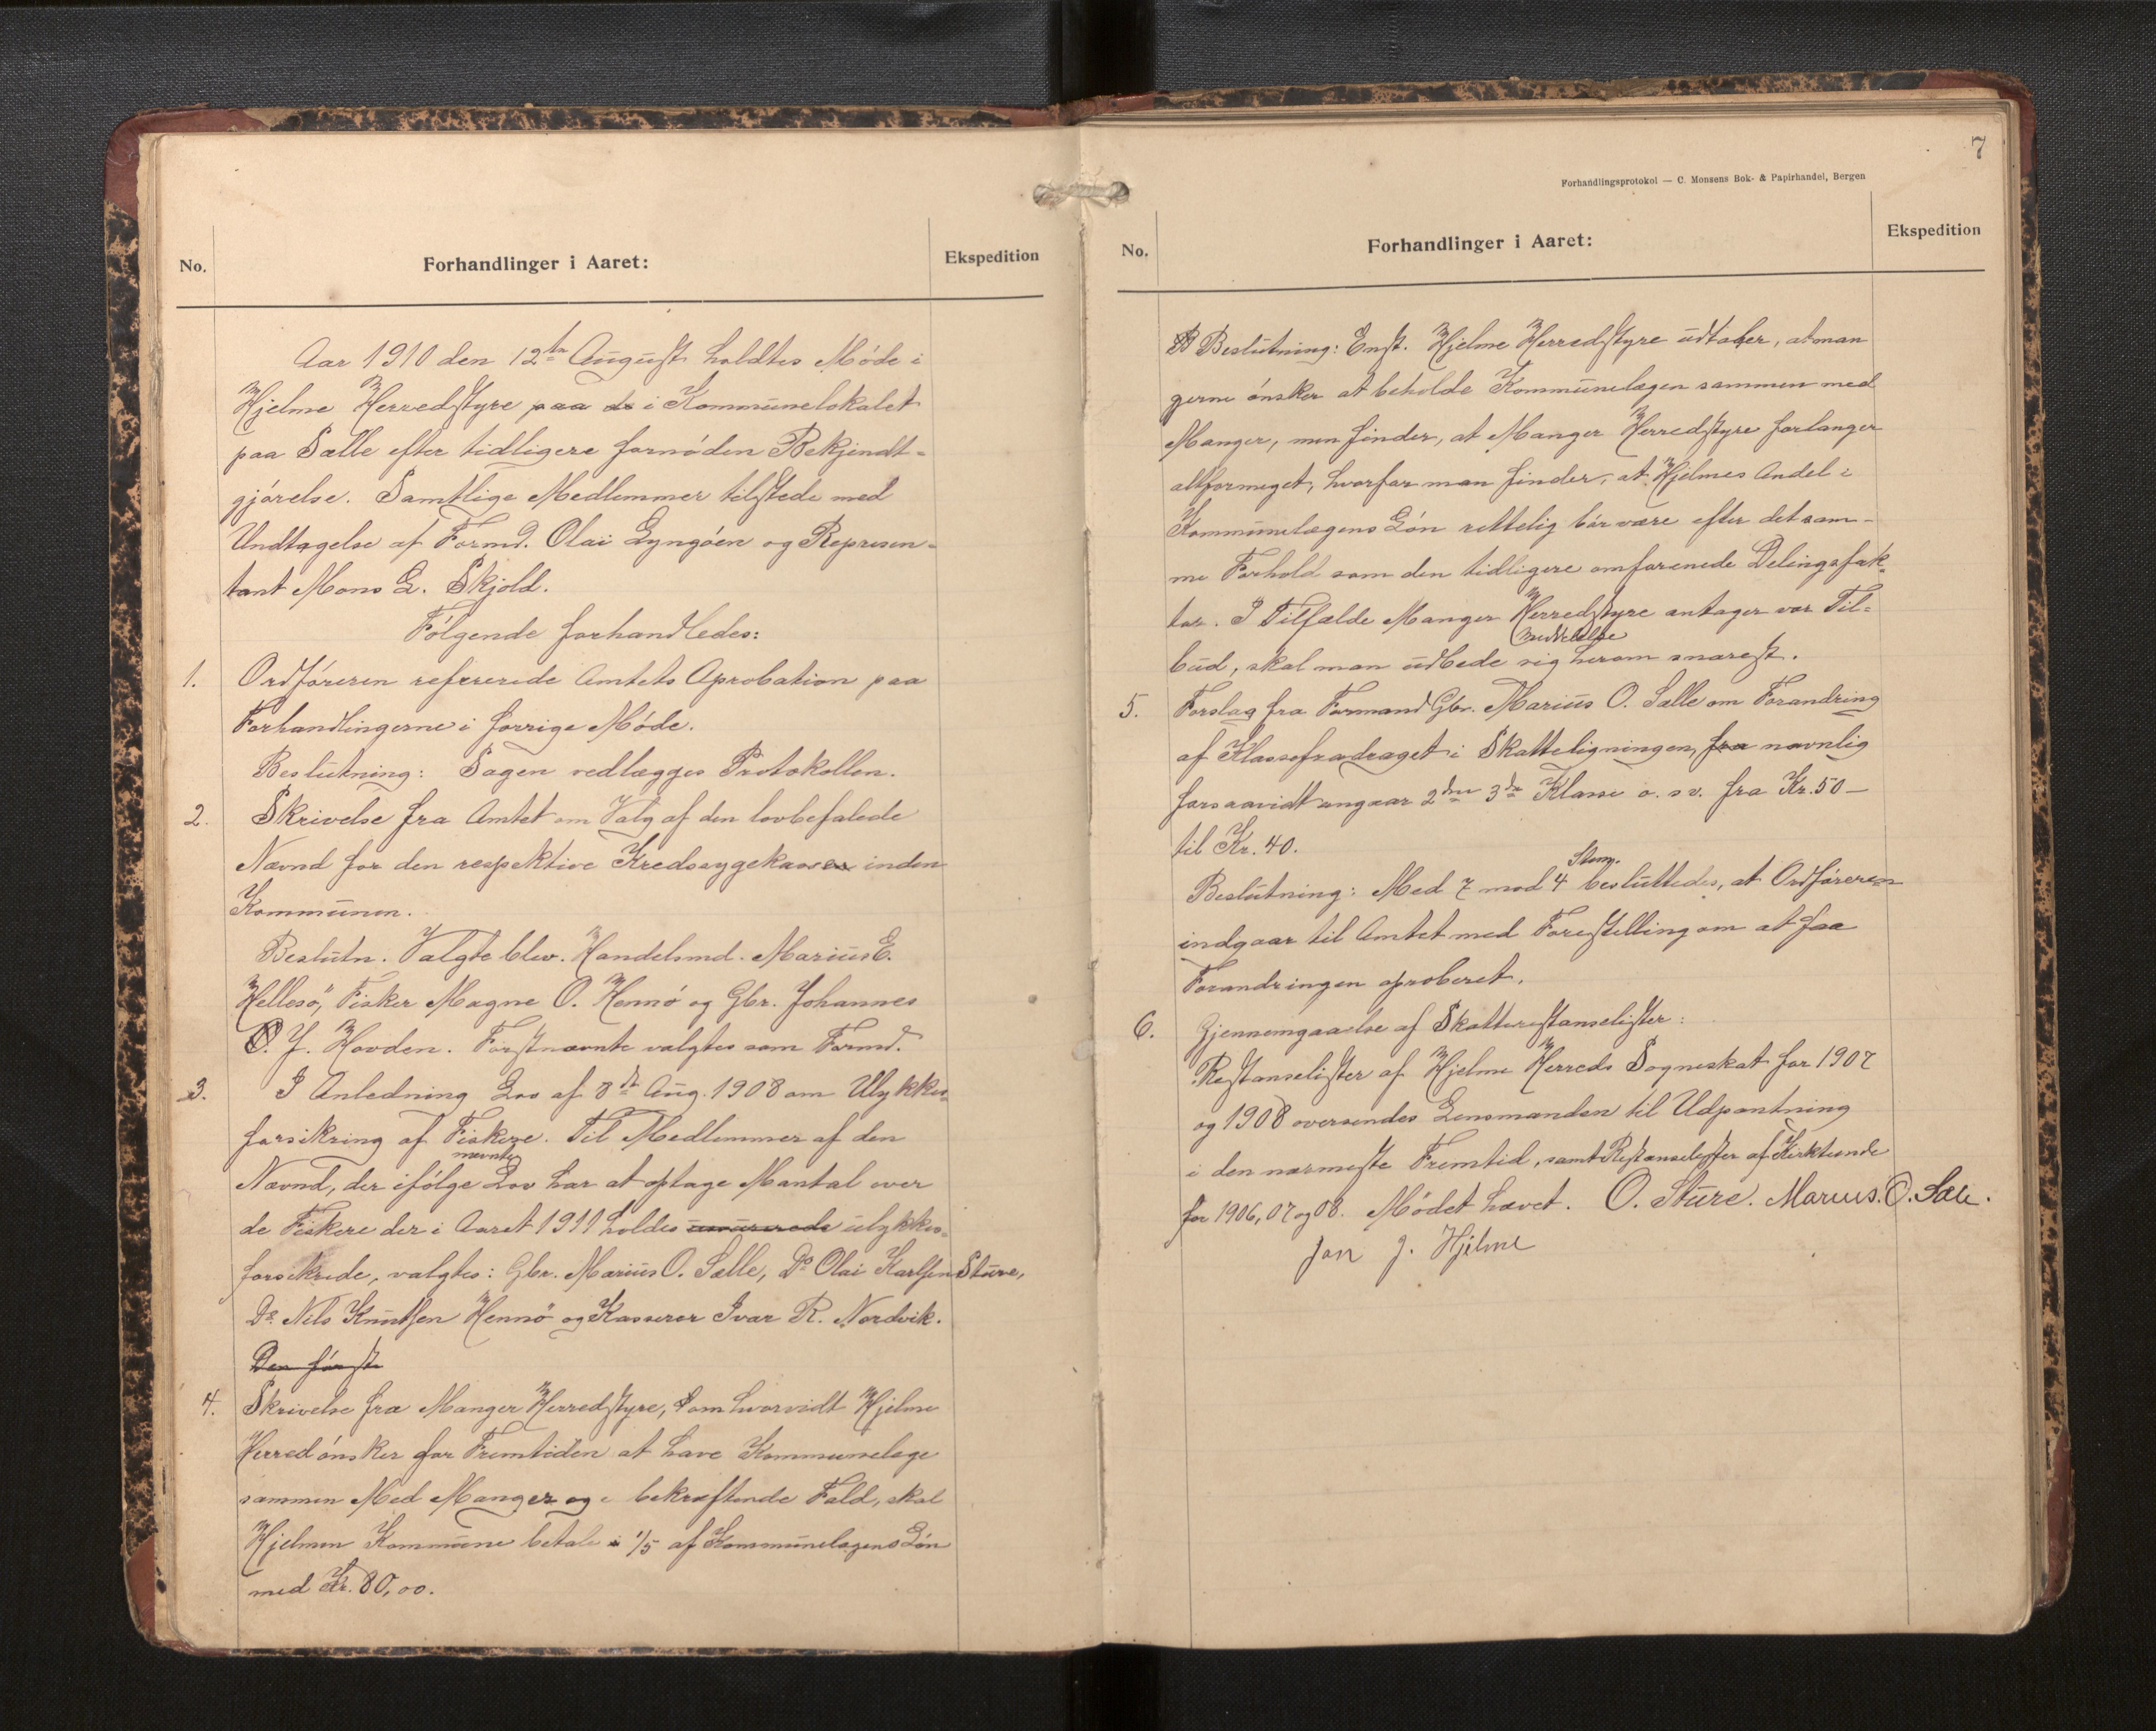 No.
Forhandlinger i Aaret:
Ekspedition
Aar 1910 den 12te August holdtes Møde i
Hjelme Herredstyre paa de i Kommunelokalet
paa Sælle efter tidligere fornøden Bekjendt-
gjørelse. Samtlige Medlemmer tilstede med
Undtagelse af Formd. Olai Lyngøen og Represen-
tant Mons L. Skjold.
Følgende forhandledes:
1. Ordføreren refererede Amtets Aprobation paa
Forhandlingerne i forrige Møde.
Beslutning: Sagen vedlægges Protokollen.
2. Skrivelse fra Amtet om Valg af den lovbefalede
Nævnd for den respektive Kredssygekasser inden
Kommunen.
Beslutn. Valgte blev. Handelsmd. Marius E.
Hellesö, Fisker Magne O. Hennø og Gbr. Johannes
O. J. Hovden. Førstnævnte valgtes som Formd.
3. I Anledning Lov af 8de Aug. 1908 om Ulykkes-
forsikring af Fiskere. Til Medlemmer af den
Nævnd, der ifølge nævnte Lov har at optage Mantal over
de Fiskere der i Aaret 1911 holdes ulykkes-
forsikrede, valgtes: Gbr. Marius O. Sælle, Do Olai Karlsen Sture,
Do. Nils Knutsen Hennö og Kasserer Ivar R. Nordvik.
Den første
4. Skrivelse fra Manger Herredstyre, om hvorvidt Hjelme
Herred ønsker for Fremtiden at have Kommunelæge
sammen Med Manger og i bekræftende Fald, skal
Hjelmen Kommune betale 1/5 af Kommunelægens Løn
med Kr. 80,00.
7
Forhandlingsprotokol — C. Monsens Bok- & Papirhandel, Bergen
No.
Forhandlinger i Aaret:
Ekspedition
Beslutning: Enst. Hjelme Herredstyre udtaler, at man
gerne ønsker at beholde Kommunelægen sammen med
Manger, men finder, at Manger Herredstyre forlanger
altformeget, hvorfor man finder, at Hjelmes Andel i
Kommunelægens Løn rettelig bør være efter det sam-
me Forhold som den tidligere omforenede Delingsfak-
tor. I Tilfælde Manger Herredstyre antager vor Til-
bud, skal man udbede sig Meddelelse herom snarest.
5. Forslag fra Formand Gbr. Marius O. Sælle om Forandring
af Klassefradraget i Skatteligningen, fra navnlig
forsaavidt angaar 2den 3de Klasse o. s v. fra Kr. 50 –
til Kr. 40.
Beslutning: Med 7 mod 4 Stem. besluttedes, at Ordføreren
indgaar til Amtet med Forestilling om at faa
Forandringen aproberet.
6. Gjennemgaaelse af Skatterestanselister:
Restanselister af Hjelme Herreds Sogneskat for 1907
og 1908 oversendes Lensmanden til Udpantning
i den nærmeste Fremtid, samt Restanselister af Kirketiende
for 1906, 07 og 08. Mødet hævet. O. Sture. Marius. O. Sæle.
Jon J. Hjelme